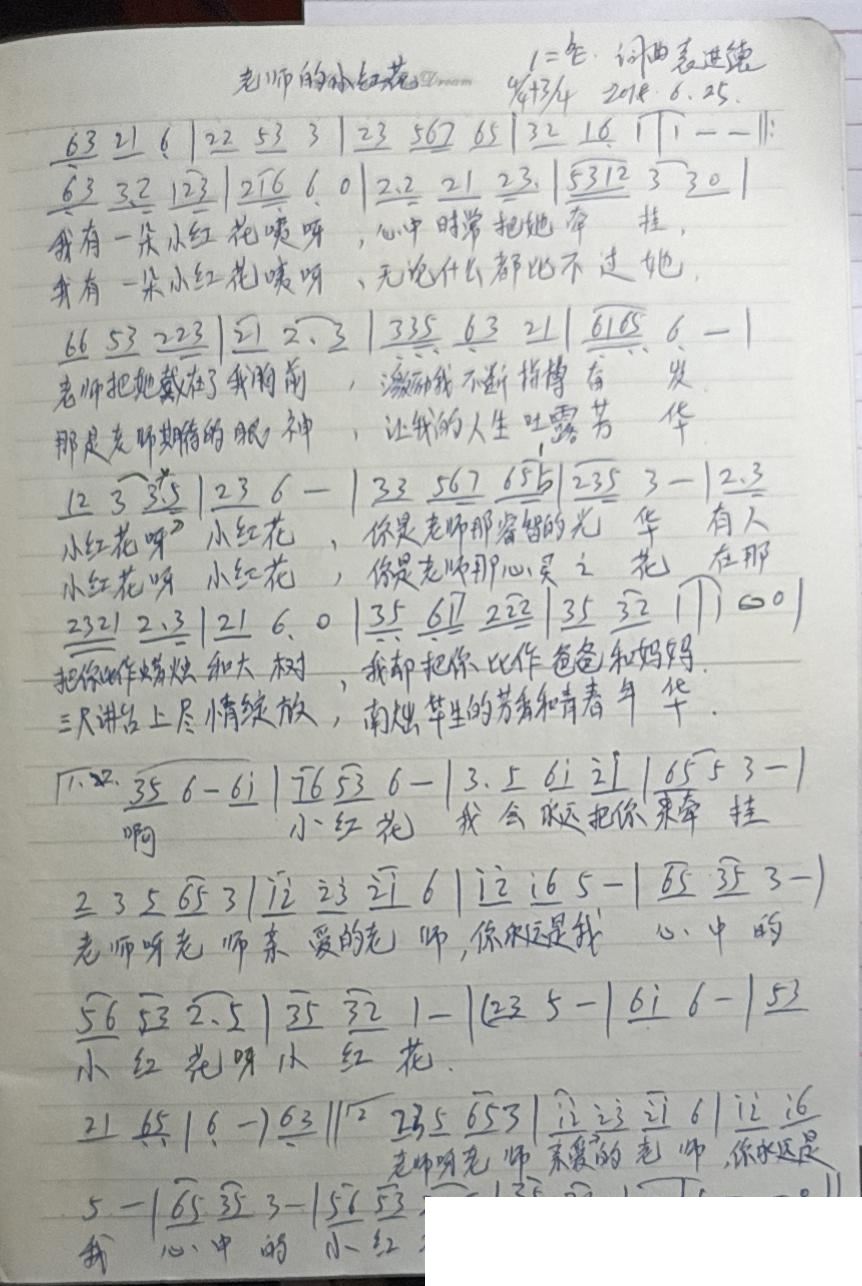 老师的小红花 Dream
1=bE 词曲袁进德
4/4+3/4 2018.6.25.
63 21 6 | 22 53 3 | 23 567 65 | 32 16 1 | 1 - - ‖:
63 32 123 | 216 6 0 | 2.2 21 23. | 5312 3 30 |
我有一朵小红花咦呀，心中时常把她牵挂，
我有一朵小红花咦呀、无论什么都比不过她，
66 53 223 | 21 2.3 | 335 63 21 | 6165 6 - |
老师把她戴在了我胸前，激励我不断拼搏奋发
那是老师期待的眼神，让我的人生吐露芳华
12 3 3.5 | 23 6 - | 33 567 65 | 235 3 - | 2.3
小红花呀 小红花，你是老师那睿智的光华 有人
小红花呀 小红花，你是老师那心灵之花 在那
2321 2.3 | 21 6. 0 | 35 61 222 | 35 32 1 | 1 0 0 |
把你比作蜡烛和大树，我却把你比作爸爸和妈妈.
三尺讲台上尽情绽放，毕生的芳香和青春年华.
1. 35 6 - 6i | i6 53 6 - | 3. 5 6i 2i | 65 5 3 - |
啊 小红花 我会永远把你来牵挂
2 3 5 65 3 | i2 23 2i 6 | i2 i6 5 - | 65 35 3 - |
老师呀老师亲爱的老师，你永远是我心中的
56 53 2.5 | 35 32 1 - | (23 5 - | 6i 6 - | 53
小红花呀小红花.
21 65 | 6 -) 63 ‖ 2 23 5 653 | i2 23 2i 6 | i2 i6
老师呀老师亲爱的老师，你永远是
5 - | 65 35 3 - | 56 53
我心中的小红